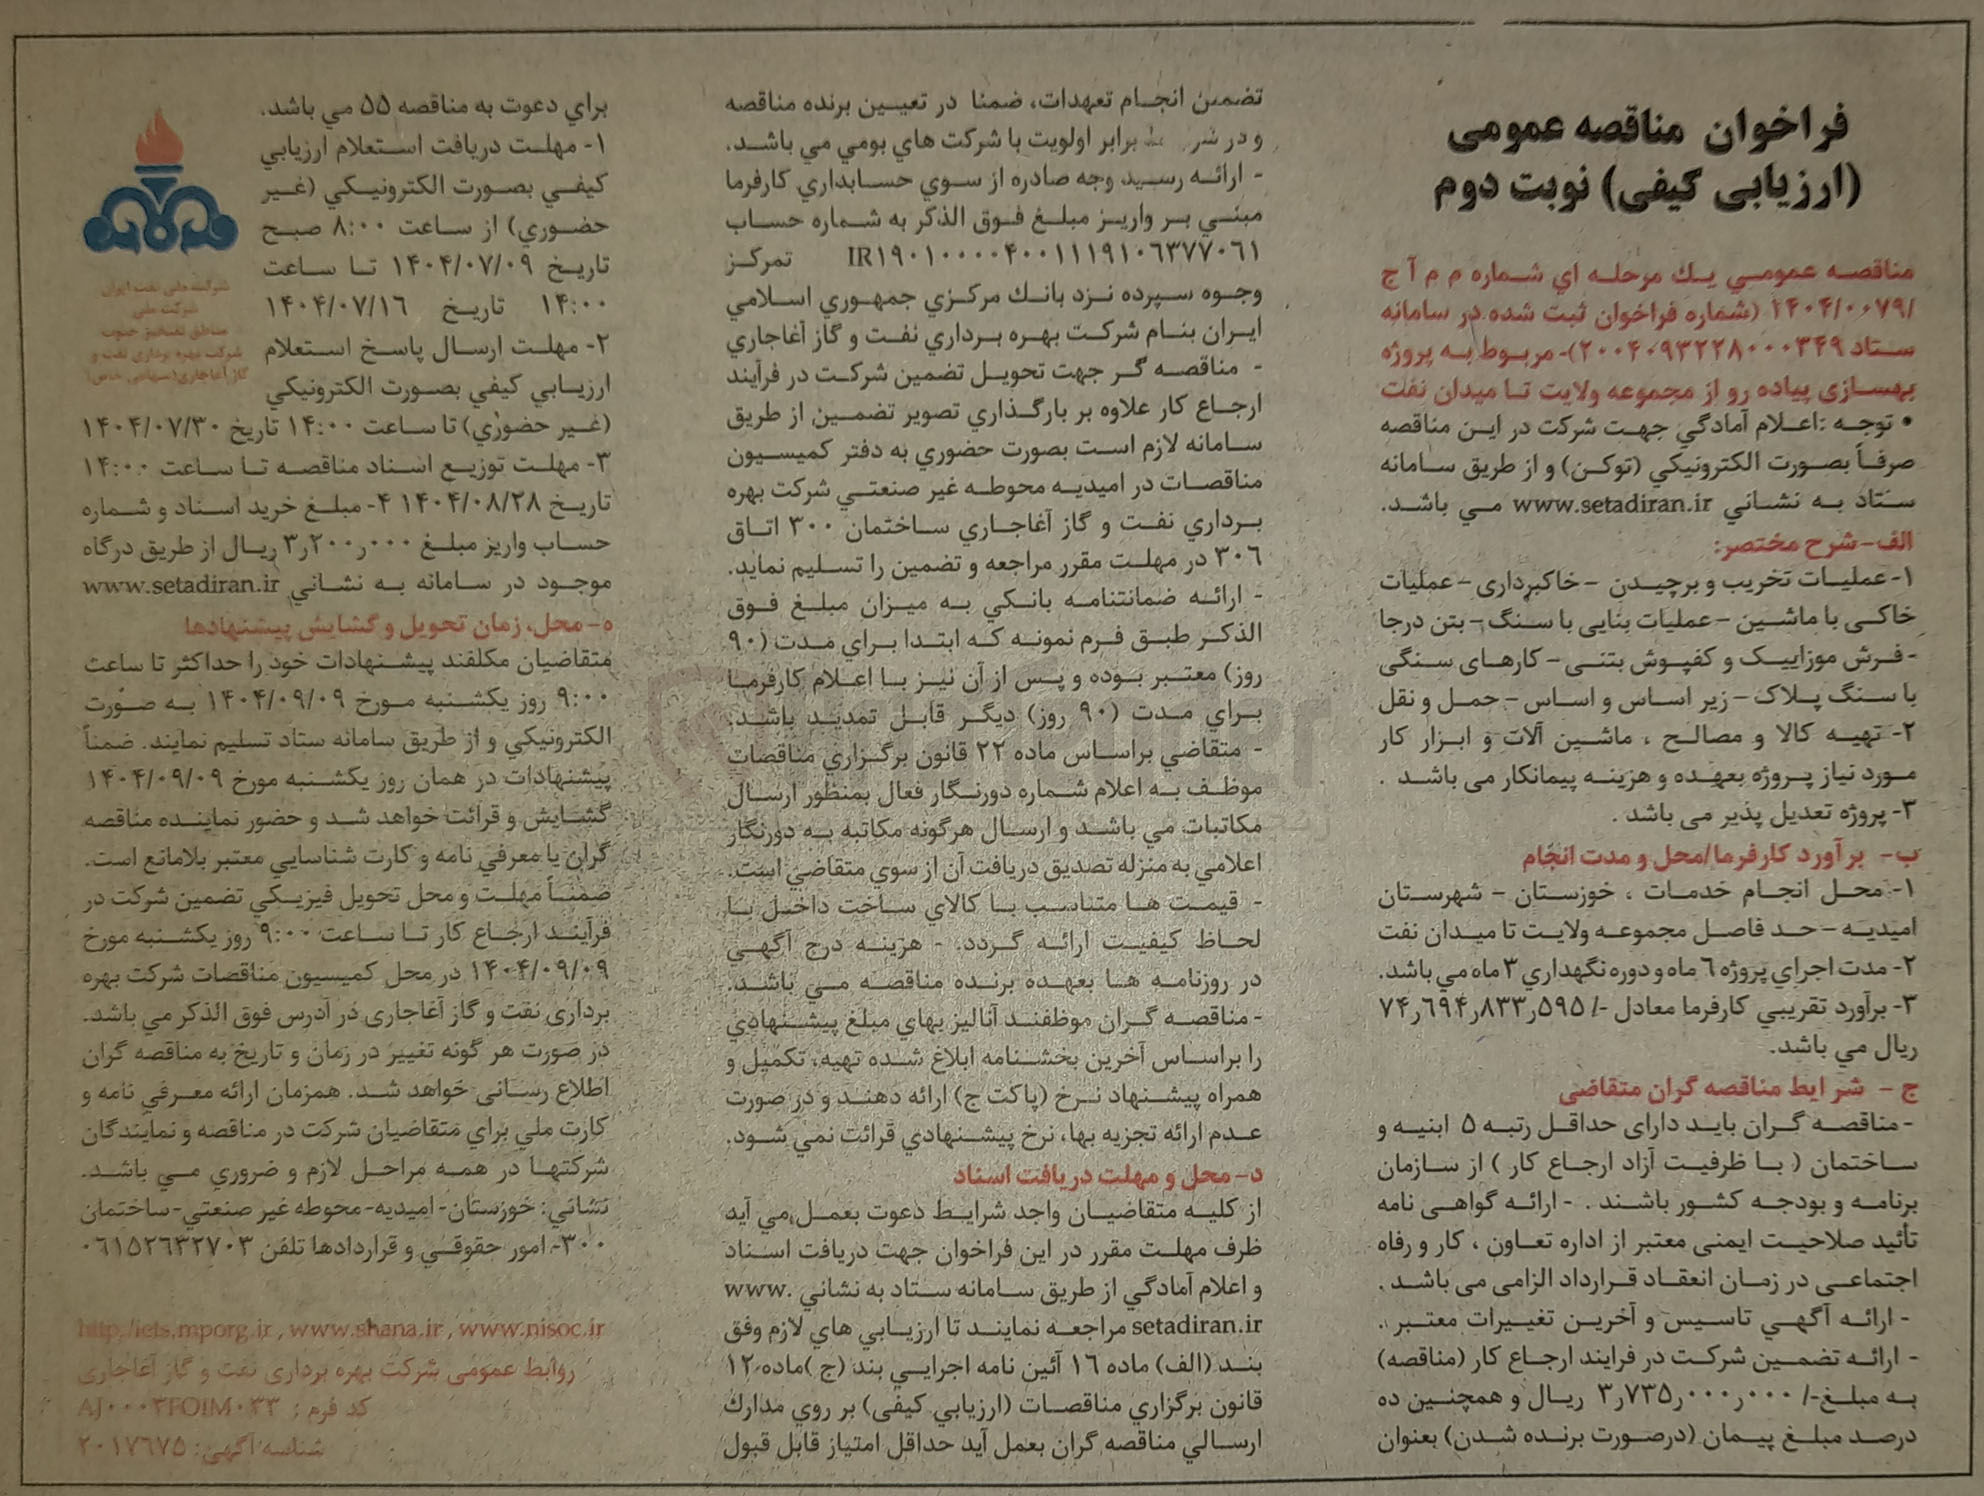 فراخوان مناقصه عمومی
(ارزیابی کیفی) نوبت دوم
مناقصه عمومي يك مرحله اي شماره م م آ ج
/۱۴۰۴/۰۰۷۹ (شماره فراخوان ثبت شده در سامانه
ستاد ۲۰۰۴۰۹۳۲۲۸۰۰۰۳۴۹)- مربوط به پروژه
بهسازی پیاده رو از مجموعه ولایت تا میدان نفت
• توجه :اعلام آمادگي جهت شركت در اين مناقصه
صرفاً بصورت الكترونيكي (توكن) و از طريق سامانه
ستاد به نشاني www.setadiran.ir مي باشد.
الف-شرح مختصر:
۱- عملیات تخریب و برچیدن – خاکبرداری – عملیات
خاکی با ماشین – عملیات بنایی با سنگ – بتن درجا
- فرش موزاییک و کفپوش بتنی – کارهای سنگی
با سنگ پلاک – زیر اساس و اساس – حمل و نقل
۲- تهیه کالا و مصالح ، ماشین آلات و ابزار کار
مورد نیاز پروژه بعهده و هزینه پیمانکار می باشد .
۳- پروژه تعدیل پذیر می باشد .
ب- برآورد کارفرما/محل و مدت انجام
۱- محل انجام خدمات ، خوزستان – شهرستان
امیدیه – حد فاصل مجموعه ولایت تا میدان نفت
۲- مدت اجراي پروژه ۶ ماه و دوره نگهداري ۳ ماه مي باشد.
۳- برآورد تقريبي كارفرما معادل -/۷۴٫۶۹۴٫۸۳۳٫۵۹۵
ريال مي باشد.
ج – شرایط مناقصه گران متقاضی
- مناقصه گران باید دارای حداقل رتبه ۵ ابنیه و
ساختمان ( با ظرفیت آزاد ارجاع کار ) از سازمان
برنامه و بودجه کشور باشند . - ارائه گواهی نامه
تأئید صلاحیت ایمنی معتبر از اداره تعاون ، کار و رفاه
اجتماعی در زمان انعقاد قرارداد الزامی می باشد .
- ارائه آگهي تاسيس و آخرين تغييرات معتبر .
- ارائه تضمین شرکت در فرایند ارجاع کار (مناقصه)
به مبلغ-/ ۳٫۷۳۵٫۰۰۰٫۰۰۰ ریال و همچنین ده
درصد مبلغ پیمان (درصورت برنده شدن) بعنوان
تضمین انجام تعهدات، ضمنا در تعیین برنده مناقصه
و در برابر اولويت با شركت هاي بومي مي باشد.
- ارائه رسيد وجه صادره از سوي حسابداري كارفرما
مبني بر واريز مبلغ فوق الذكر به شماره حساب
IR۱۹۰۱۰۰۰۰۴۰۰۱۱۱۹۱۰۶۳۷۷۰۶۱ تمركز
وجوه سپرده نزد بانك مركزي جمهوري اسلامي
ايران بنام شركت بهره برداري نفت و گاز آغاجاري
- مناقصه گر جهت تحويل تضمين شركت در فرآيند
ارجاع كار علاوه بر بارگذاري تصوير تضمين از طريق
سامانه لازم است بصورت حضوري به دفتر كميسيون
مناقصات در اميديه محوطه غير صنعتي شركت بهره
برداري نفت و گاز آغاجاري ساختمان ۳۰۰ اتاق
۳۰۶ در مهلت مقرر مراجعه و تضمين را تسليم نمايد.
- ارائه ضمانتنامه بانكي به ميزان مبلغ فوق
الذكر طبق فرم نمونه كه ابتدا براي مدت (۹۰
روز) معتبر بوده و پس از آن نيز با اعلام كارفرما
براي مدت (۹۰ روز) ديگر قابل تمديد باشد.
- متقاضي براساس ماده ۲۲ قانون برگزاري مناقصات
موظف به اعلام شماره دورنگار فعال بمنظور ارسال
مكاتبات مي باشد و ارسال هرگونه مكاتبه به دورنگار
اعلامي به منزله تصديق دريافت آن از سوي متقاضي است.
- قيمت ها متناسب با كالاي ساخت داخل با
لحاظ كيفيت ارائه گردد. - هزينه درج آگهي
در روزنامه ها بعهده برنده مناقصه مي باشد.
- مناقصه گران موظفند آناليز بهاي مبلغ پيشنهادي
را براساس آخرين بخشنامه ابلاغ شده تهيه، تكميل و
همراه پيشنهاد نرخ (پاكت ج) ارائه دهند و در صورت
عدم ارائه تجزيه بها، نرخ پيشنهادي قرائت نمي شود.
د- محل و مهلت دريافت اسناد
از كليه متقاضيان واجد شرايط دعوت بعمل مي آيد
ظرف مهلت مقرر در اين فراخوان جهت دريافت اسناد
و اعلام آمادگي از طريق سامانه ستاد به نشاني www.
setadiran.ir مراجعه نمايند تا ارزيابي هاي لازم وفق
بند (الف) ماده ۱۶ آئين نامه اجرايي بند (ج )ماده ۱۲
قانون برگزاري مناقصات (ارزيابي كيفی) بر روي مدارك
ارسالي مناقصه گران بعمل آيد حداقل امتياز قابل قبول
براي دعوت به مناقصه ۵۵ مي باشد.
۱- مهلت دريافت استعلام ارزيابي
كيفي بصورت الكترونيكي (غير
حضوري) از ساعت ۸:۰۰ صبح
تاريخ ۱۴۰۴/۰۷/۰۹ تا ساعت
۱۴:۰۰ تاريخ ۱۴۰۴/۰۷/۱۶
۲- مهلت ارسال پاسخ استعلام
ارزيابي كيفي بصورت الكترونيكي
(غير حضوري) تا ساعت ۱۴:۰۰ تاريخ ۱۴۰۴/۰۷/۳۰
۳- مهلت توزيع اسناد مناقصه تا ساعت ۱۴:۰۰
تاريخ ۱۴۰۴/۰۸/۲۸ ۴- مبلغ خريد اسناد و شماره
حساب واريز مبلغ ۳٫۲۰۰٫۰۰۰ ريال از طريق درگاه
موجود در سامانه به نشاني www.setadiran.ir
ه- محل، زمان تحويل و گشايش پيشنهادها
متقاضيان مكلفند پيشنهادات خود را حداكثر تا ساعت
۹:۰۰ روز يكشنبه مورخ ۱۴۰۴/۰۹/۰۹ به صورت
الكترونيكي و از طريق سامانه ستاد تسليم نمايند. ضمناً
پيشنهادات در همان روز يكشنبه مورخ ۱۴۰۴/۰۹/۰۹
گشايش و قرائت خواهد شد و حضور نماينده مناقصه
گران با معرفي نامه و كارت شناسايي معتبر بلامانع است.
ضمناً مهلت و محل تحويل فيزيكي تضمين شركت در
فرآيند ارجاع كار تا ساعت ۹:۰۰ روز يكشنبه مورخ
۱۴۰۴/۰۹/۰۹ در محل كميسيون مناقصات شركت بهره
برداری نفت و گاز آغاجاری در آدرس فوق الذكر مي باشد.
در صورت هر گونه تغيير در زمان و تاريخ به مناقصه گران
اطلاع رسانی خواهد شد. همزمان ارائه معرفي نامه و
كارت ملي براي متقاضيان شركت در مناقصه و نمايندگان
شركتها در همه مراحل لازم و ضروري مي باشد.
نشاني: خوزستان- اميديه- محوطه غير صنعتي- ساختمان
۳۰۰- امور حقوقي و قراردادها تلفن ۰۶۱۵۲۶۳۲۷۰۳
http:/iets.mporg.ir , www.shana.ir , www.nisoc.ir
روابط عمومی شرکت بهره برداری نفت و گاز آغاجاری
کد فرم : AJ۰۰۰۳FOIM۰۳۳
شناسه آگهی: ۲۰۱۷۶۷۵
شرکت ملی نفت ایران
شرکت ملی
مناطق نفتخیز جنوب
شرکت بهره برداری نفت و
گاز آغاجاری(سهامی خاص)